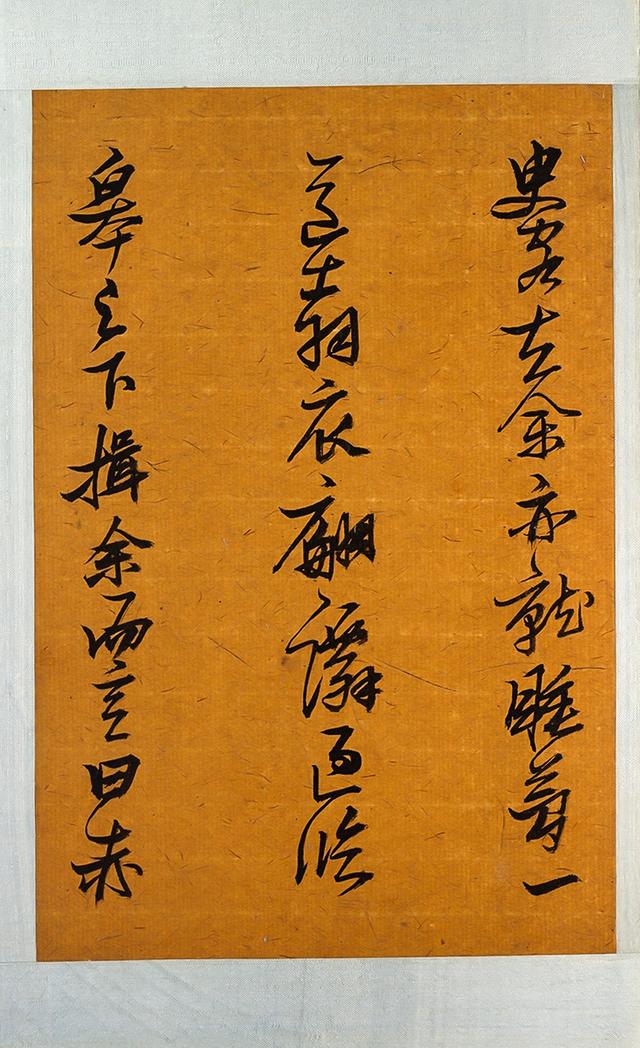 臾客去余亦就睡夢一
道士羽衣翩躚過臨
皋之下揖余而言曰赤